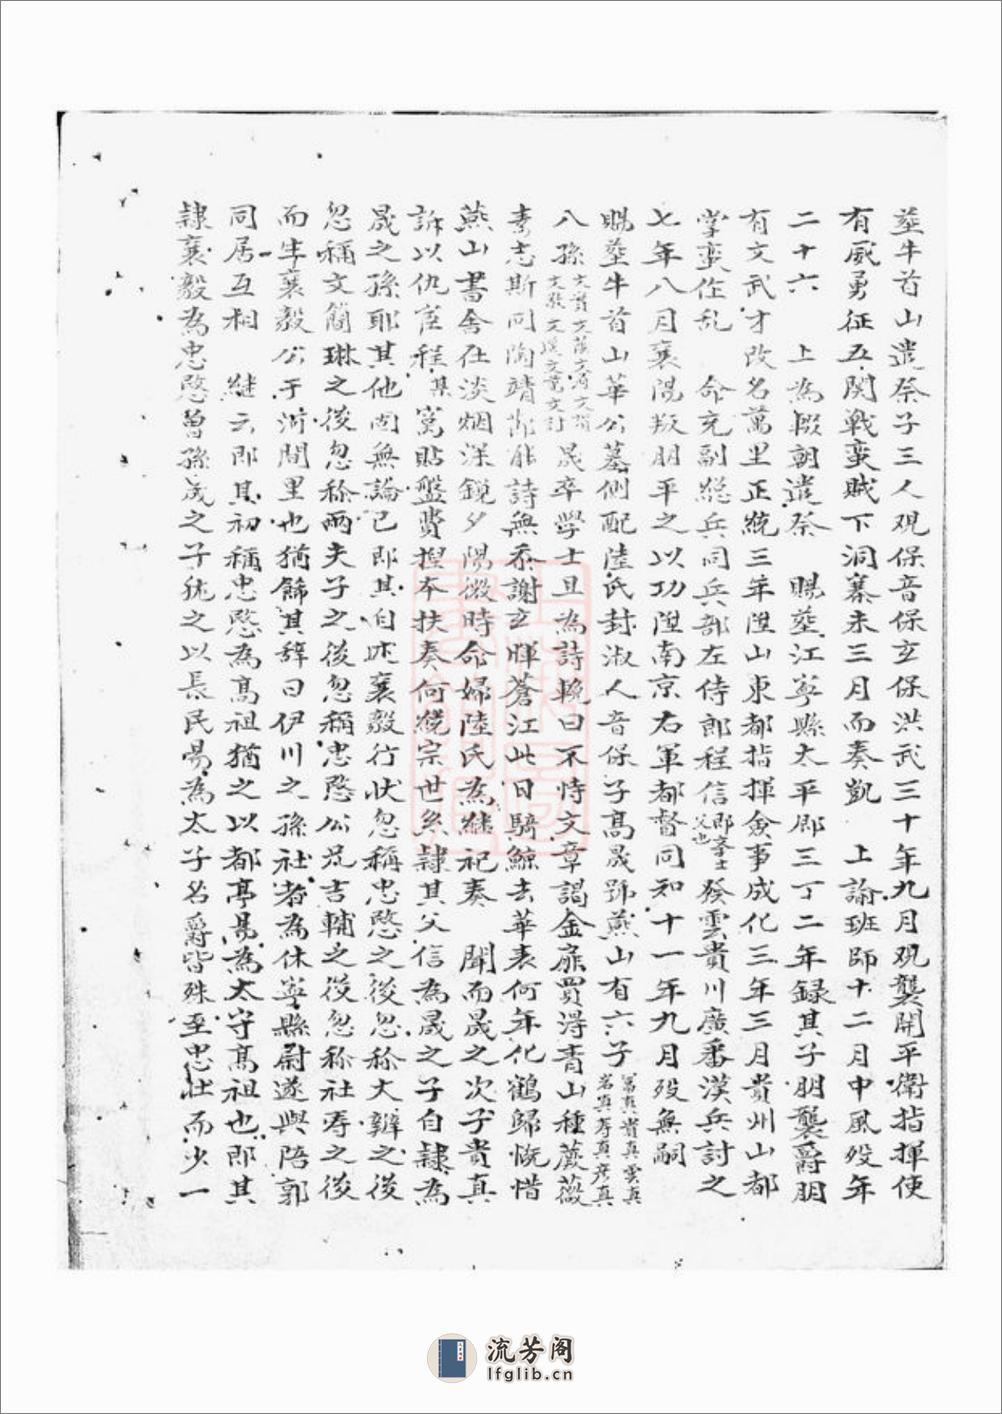 塟牛首山遣祭子三人观保音保玄保洪武三十年九月观襲開平衛指揮使
有威勇征五関戦蛮賊下洞寨未三月而奏凱　上諭班師十二月中風殁年
二十六　上為輟朝遣祭　賜塟江寧縣太平郷三丁二年録其子朋襲爵朋
有文武才改名萬里正統三年陞山東都指揮僉事成化三年三月貴州山都
掌蛮作乱　命充副縂兵同兵部左侍郎程信即學士父也癸雲貴川廣番漢兵討之
七年八月襄陽叛朋平之以功陞南京右軍都督同知十一年九月殁無嗣
賜塟牛首山華公墓側配陸氏封淑人音保子高晟號燕山有六子富真貴真雲真名真寿真彦真
八孫晟卒學士旦為詩輓曰不恃文章謁金扉買得青山種蕨薇
素志斯同陶靖節能詩無忝謝玄暉蒼江此日騎鯨去華表何年化鶴歸慨惜
燕山書舍在淡烟深鎖夕陽微時命婦陸氏為継祀奏　聞而晟之次子貴真
訴以仇宦程某寃貼盤費揑本扶奏何繞宗世糸隷其父信為晟之子自隷為
晟之孫耶其他固無論已即其自述襄毅行状忽稱忠愍之後忽称大辧之後
忽稱文簡琳之後忽称兩夫子之後忽稱忠愍公兄吉輔之後忽称社寿之後
而牛襄毅公于河間里也猶餙其辞曰伊川之孫社者為休寧縣尉遂與陪郭
同居互相　継云即其初稱忠愍為高祖猶之以都亭易為太守高祖也即其
隷襄毅為忠愍曽孫晟之子猶之以長民易為太子名爵皆殊至忠壮而少一
流芳阁
lfglib.cn